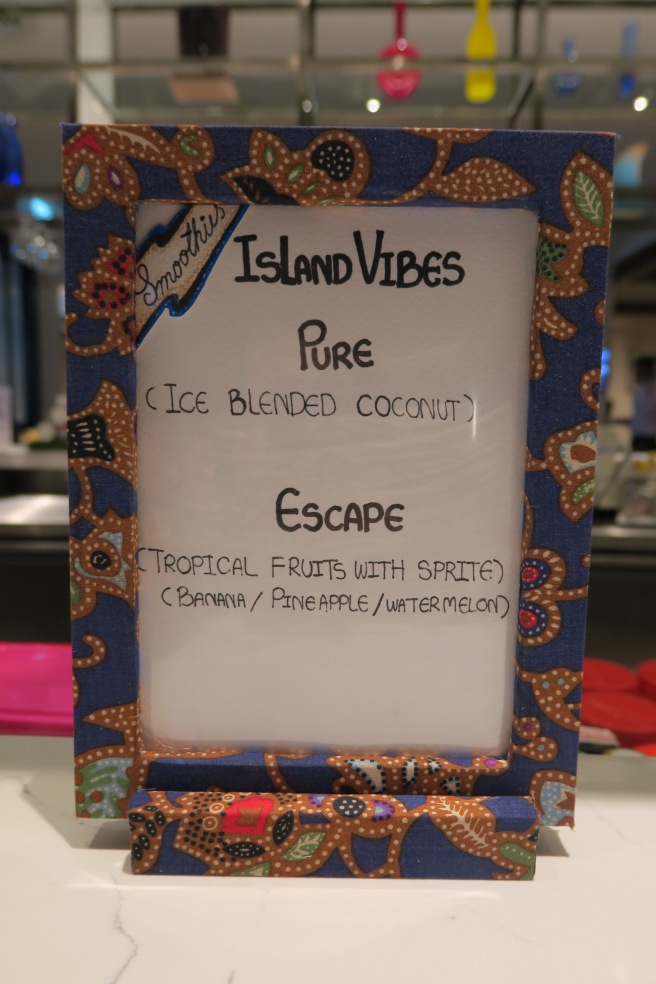 Smoothies
ISLAND VIBES
PURE
(ICE BLENDED COCONUT)
ESCAPE
(TROPICAL FRUITS WITH SPRITE)
(BANANA/ PINEAPPLE/WATERMELON)